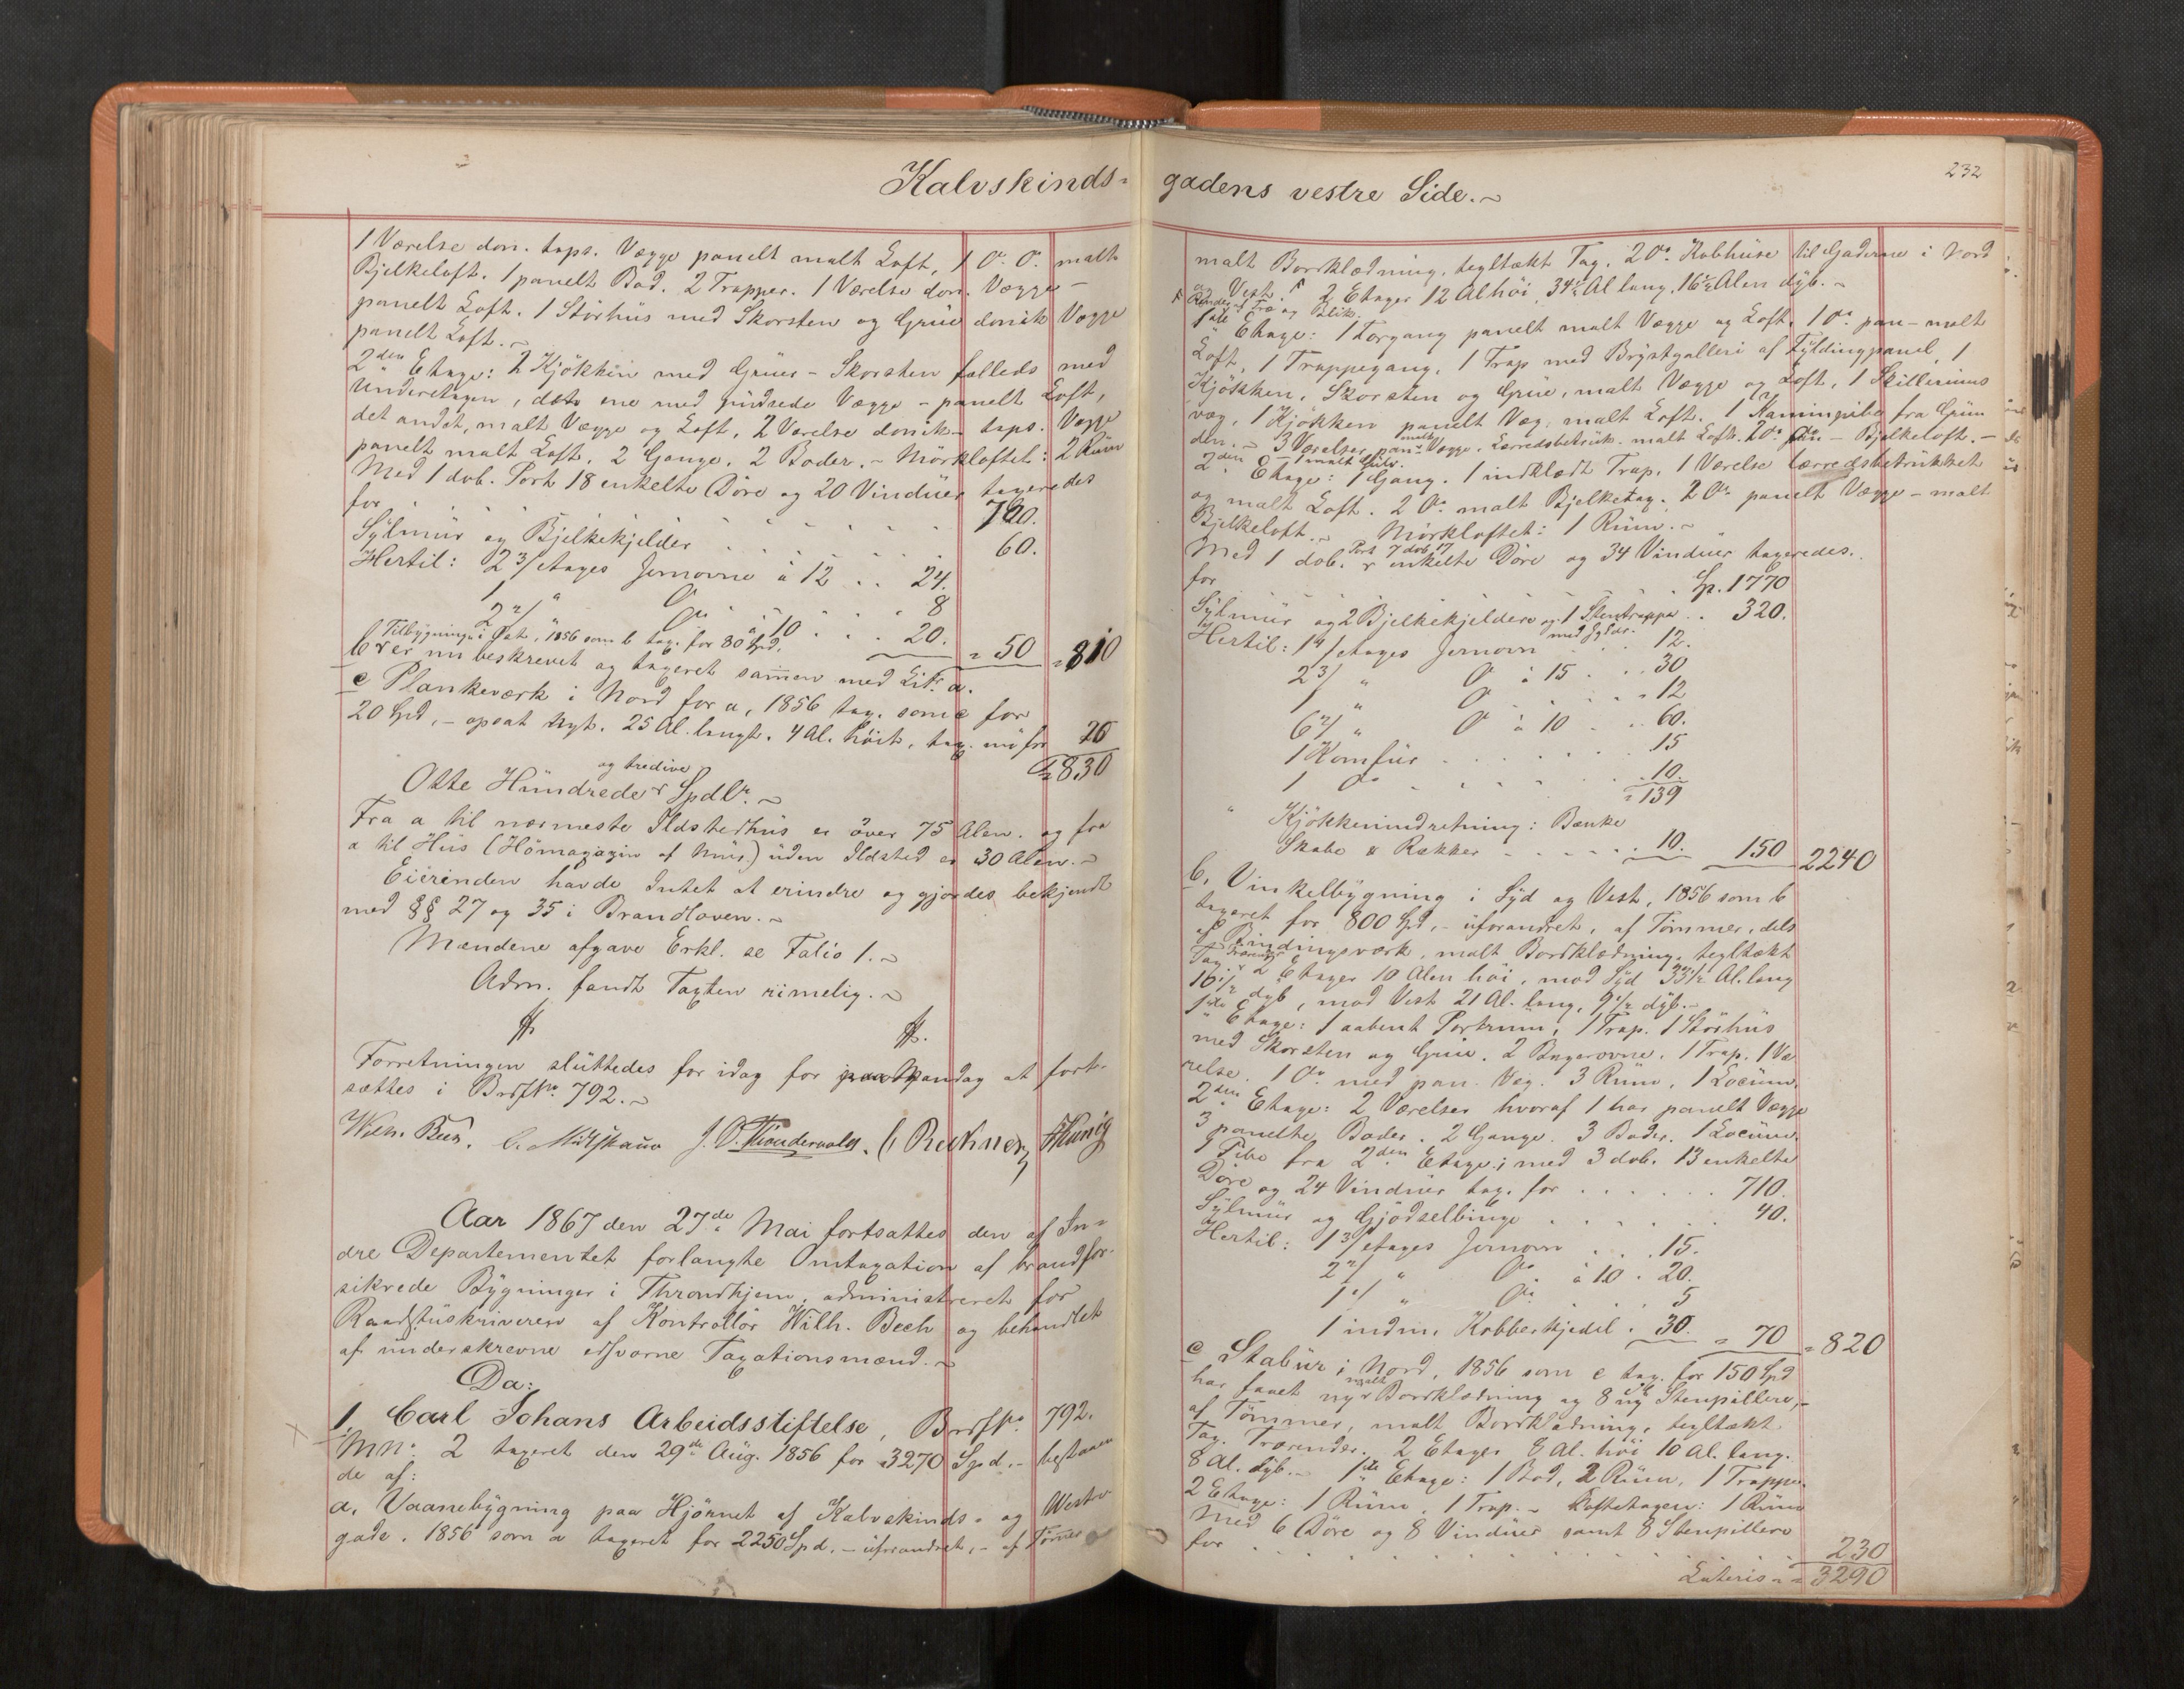 Kalvskinds-
1 Værelse don. taps. Vægge panelt malt Loft, 1 Do. Do. malt
Bjelkeloft. 1 panelt Bod. 2 Trapper. 1 Værelse don. Vægge -
panelt Loft. 1 Störhüs med Skorsten og Grüe donik Vægge
panelt Loft.
2den Etage: 2 Kjökken med Grüer - Skorsten fælleds med
Underetagen, det ene med püdsede Vægge - panelt Loft,
det andet, malt Vægge og Loft, 2 Værelse donik - taps. Vægge
panelt malt Loft, 2 Gange, 2 Boder. - Mörkloftet: 2 Rüm
Med 1 dob. Port 18 enkelte Döre og 20 Vindüer taxeredes
for . . . 700.
Sylmür og Bjelkekjelder . . . 60.
Hertil: 2 3/etages Jernovne à 12 . . 24.
1 " Do . . 8
2 2/ " Do à 10 . . . 20. = 50 = 810
b Tilbygningen i Öst, 1856 som b tax. for 80 Spd.
er nu beskrevet og taxeret sammen med Litr. a.
c Plankeværk i Nord for a, 1856 tax. som c for
20 Spd, - opsat nyt. 25 Al. langt. 4 Al. höit, tax. nü for 20
= 830
Otte Hündrede og tredive Spdlr.
Fra a til nærmeste Ildstedhüs er över 75 Alen. og fra
a til Hüs (Hömagazin af Müür.) üden Ildsted er 30 Alen.
Eierinden havde Intet at erindre og gjordes bekjendt
med §§ 27 og 35 i Brandloven.
Mændene afgave Erkl. se Folio 1.
Adm. fandt Taxten rimelig.
Forretningen slüttedes for idag for paa Mandag at fort-
sættes i BrdfNo. 792.
Wilh. Bech.
Aar 1867 den 27de Mai fortsattes den af In-
dre Departementet forlangte Omtaxation af brandfor-
sikrede Bygninger i Throndhjem, administreret for
Raadstüskriveren af Kontrollör Wilh. Bech og behandlet
af underskrevne edsvorne Taxationsmænd.
Da:
1, Carl Johans Arbeidsstiftelse, BrdfNo 792.
MNo. 2 taxeret den 29de Aüg. 1856 for 3270 Spd. - bestaaen
de af:
a, Vaanebygning paa Hjörnet af Kalvskinds- og Westre
gade. 1856 som a taxeret for 2250 Spd. - uforandret, - af Tömmer
232
gadens vestre Side.
malt Bordklædning, tegltækt Tag. 2 Do. Kobhüse til Gaderne i Nord
og Vest. 2 Etager 12 Al höi, 34½ Al lang, 16½ Alen dyb.
Render af Træ og Blik.
1ste Etage: 1 Forgang panelt malt Vægge og Loft, 1 Do. pan - malt
Loft, 1 Trappegang, 1 Trap med Brystgalleri af Fyldingpanel, 1
Kjökken, Skorsten og Grüe, malt Vægge og Loft, 1 Skillerüms
væg, 1 Kjökken panelt Væg, malt Loft. 1 Kaminpibe fra Grün
den. - 3 Værelser pan- malt Vægge, Lærredsbetrük. malt Loft. 2 Do. Do. - Bjelkeloft. -
2den Etage: 1 Gang. 1 indklædt Trap. 1 Værelse lærredsbetrükket
og malt Loft. 2 Do. malt Bjelketag. 2 Do. panelt Vægge - malt
Bjelkeloft. Mörkloftet: 1 Rüm.
Med 1 dob. Port 7 dob 17 enkelte Döre og 34 Vindüer taxeredes.
for . . . Sp. 1770
Sylmür og 2 Bjelkekjeldere og 1 Stentrappe . . 320.
Hertil: 1 4/etages Jernovn . . . 12.
2 3/ " Do à 15 . . . 30
1 " Do . . . 12
6 2/ " Do à 10 . . 60.
1 Komfür . . . 15
1 Do . . . 10.
= 139
" Kjökkenindretning: Bænke
Skabe & Rækker . . . 10. 150 2240
b, Vinkelbygning i Syd og Vest, 1856 som b
taxeret for 800 Spd, - üforandret, af Tömmer, dels
af Bindingsværk, malt Bordklædning, tegltækt
Tag. Trærender 2 Etager 10 Alen höi, mod Syd 33½ Al. lang
10½ dyb, mod Vest 21 Al. lang, 9½ dyb.
1ste Etage: 1 aabent Portrüm, 1 Trap. 1 Störhüs
med Skorsten og Grüe. 2 Bagerovne. 1 Trap. 1 Væ
relse. 1 Do. med pan. Væg. 3 Rüm, 1 Locüm.
2den Etage: 2 Værelser hvoraf 1 har panelt Vægge
3 panelte Boder. 2 Gange. 3 Boder. 1 Locüm.
1 Pibe fra 2den Etage; med 3 dob. 13 enkelte
Döre og 24 Vindüer tax. for . . . 710.
Sylmür og Gjödselbinge . . . 40.
Hertil: 1 3/etages Jernovn . . . 15.
2 2/ " Do. à 10 . 20.
1 1/ " Do. . 5
1 indm. Kobberkjedel . 30. = 70 = 820
c Stabür i Nord, 1856 som c tax. for 150 Spd
har faaet ny malt Bordklædning og 8 nye Stenpillere, -
af Tömmer, malt Bordklædning, tegltækt
Tag. Trærender. 2 Etager 8 Al. höi 10 Al. lang.
8 Al. dyb. - 1ste Etage: 1 Bod, 2 Rüm, 1 Trappe.
2 Etage: 1 Rüm, 1 Trap. - Loftetagen: 1 Rüm
Med 6 Döre og 8 Vindüer samt 8 Stenpillere
for . . . 230
Lateris = 3290